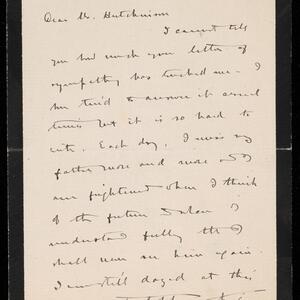 Dear Mr. Hutchinson
I cannot tell
you how much your letter of
sympathy has touched me - I
have tried to answer it several
times but it is so hard to
write. Each day I miss my
father more and more and I
am frightened when I think
of the future & when I
understand fully that I
shall never see him again.
I am still dazed at this